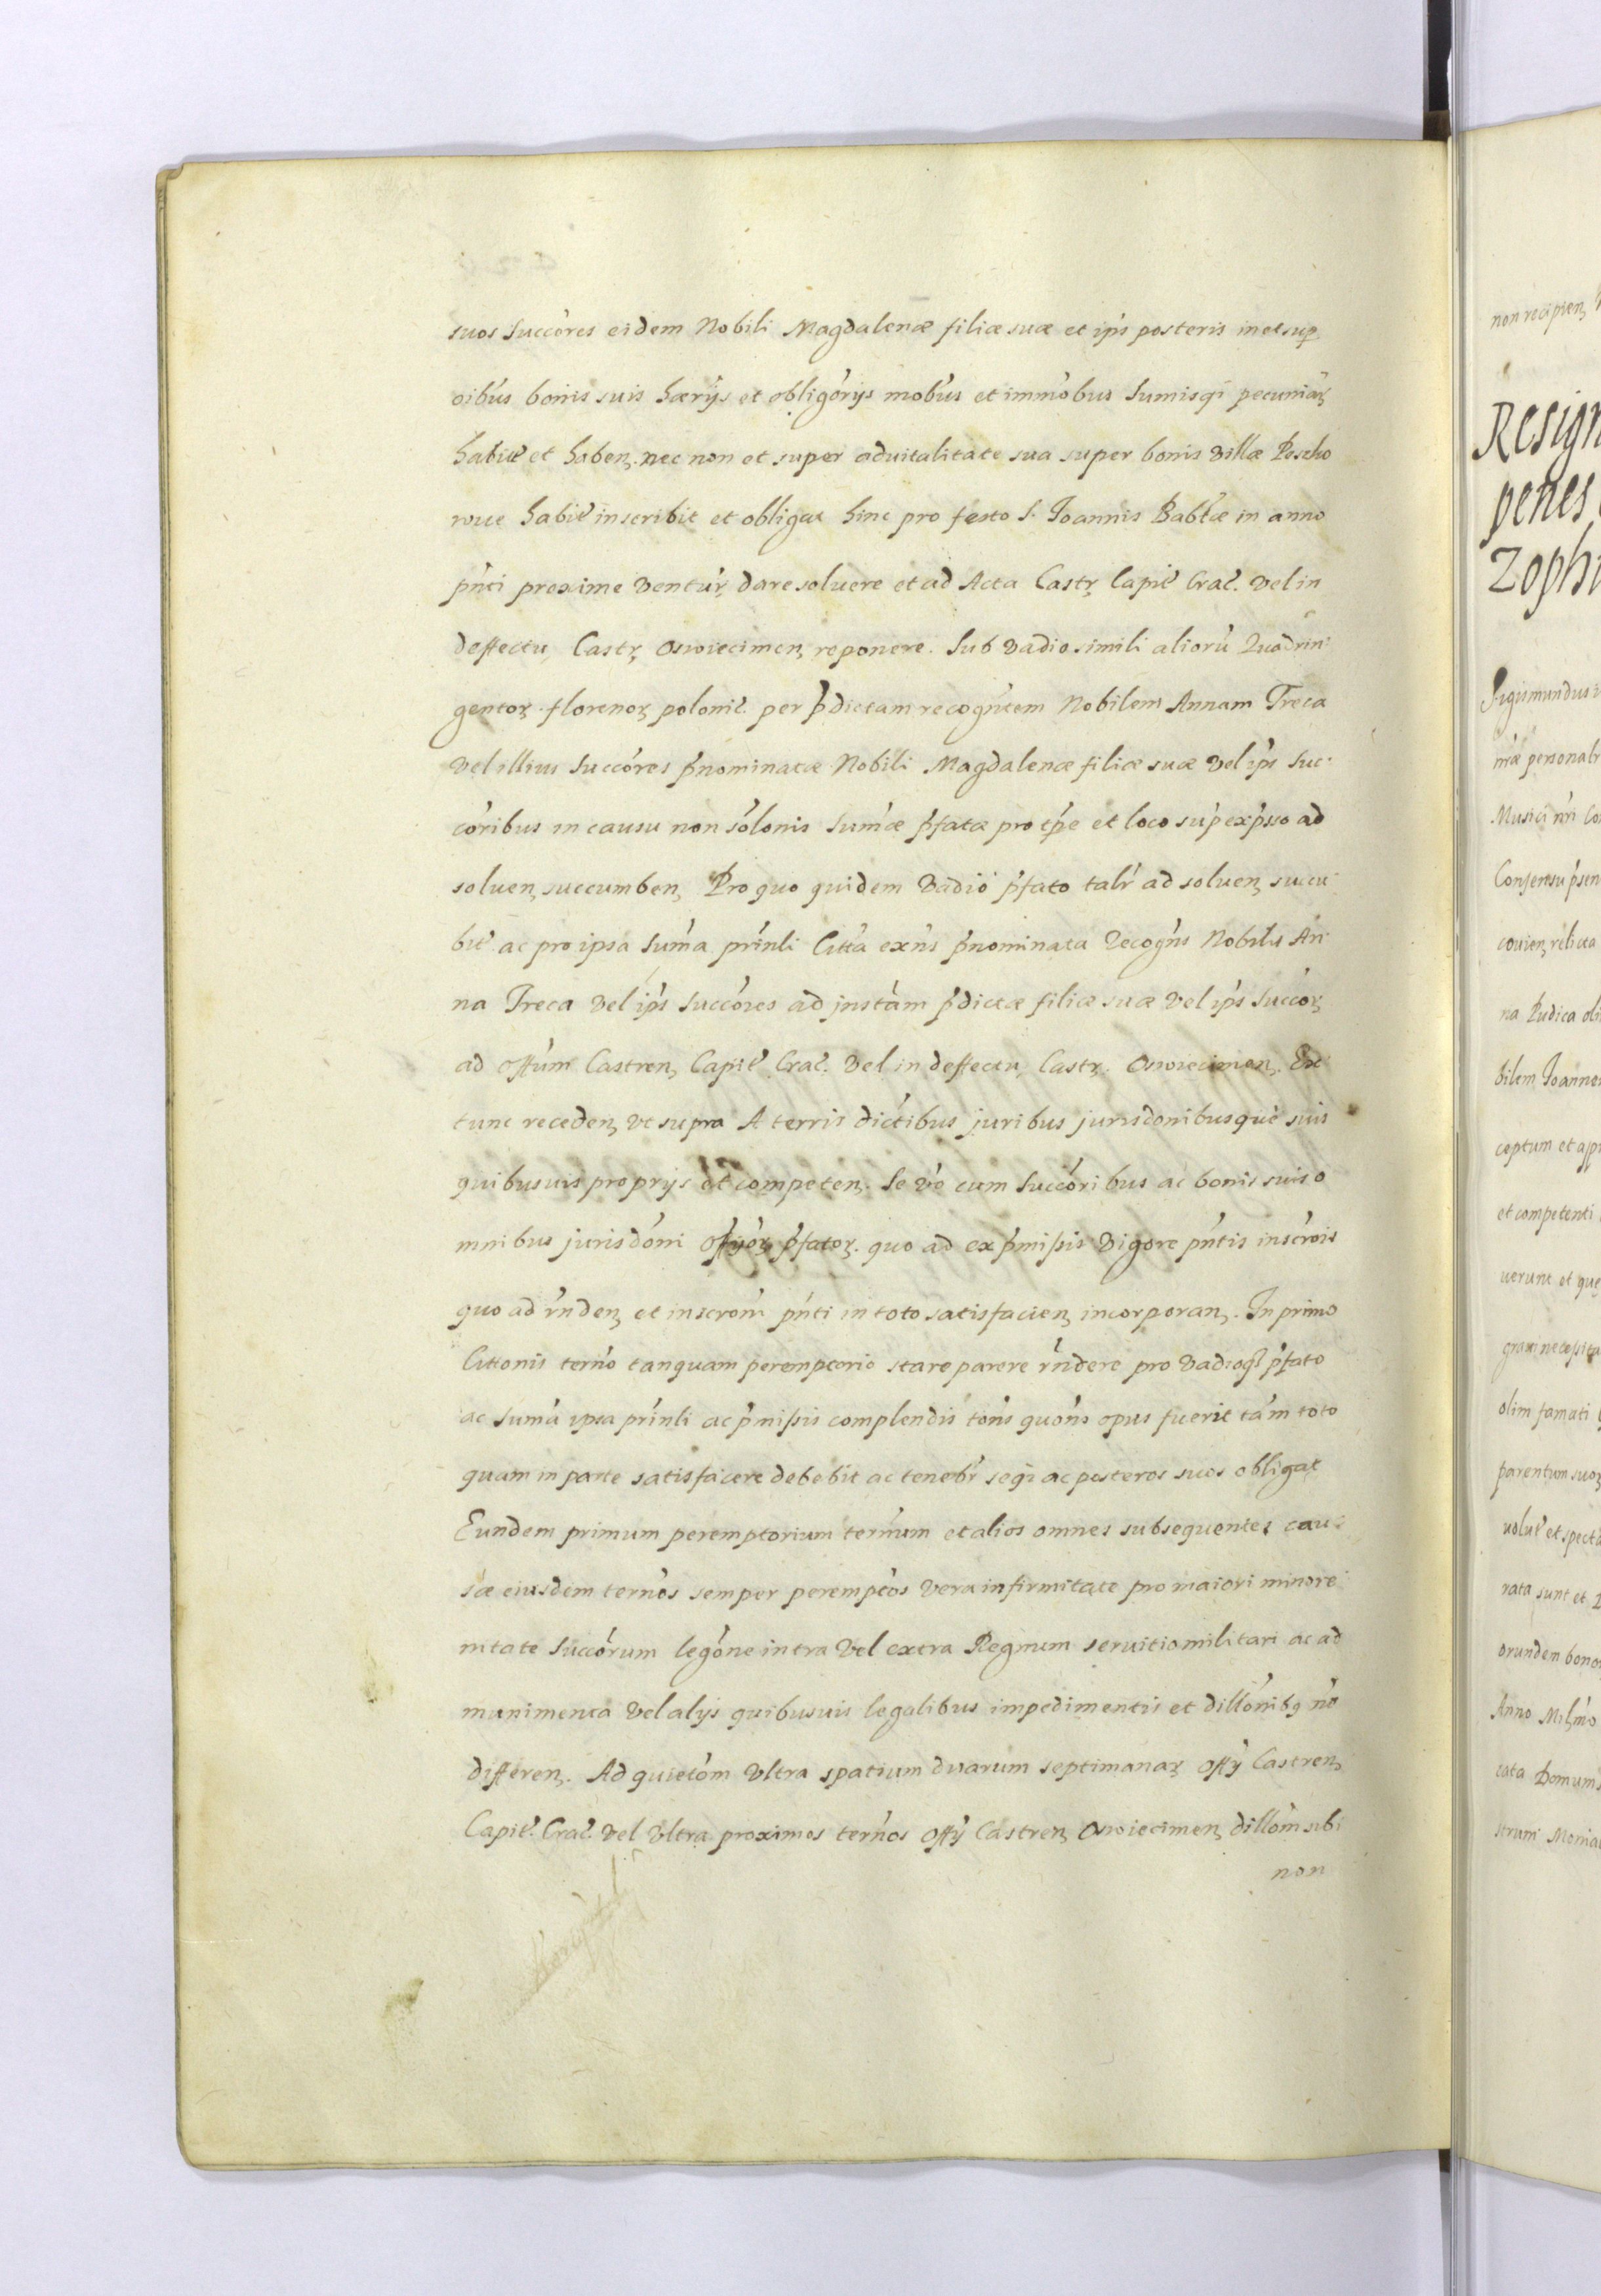 suos Succóres eidem Nobili Magdalenæ filiæ suæ et ip̃s posteris in et sup
oibús bonis suis hærijs et obligórijs mobús et immóbus Sumisq́ pecuniaꝝ
habit̃ et habenꝫ nec non et super aduitalitate sua super bonis Villæ
habit̃ inscribit et obligat hinc pro festo S. Joannis Babtæ in anno
pńti proxime Ventuꝝ dare soluere et ad Acta Castꝝ Capit̃ Crac̃. Vel in
deffectu Castꝝ Oswiecimenꝫ reponere. Sub Vadio simili aliorũ Quadrin
gentoꝝ florenoꝝ polonic̃. per p̃dictam recognt́em Nobilem Annam Treca
Vel illius Succóres p̃nominatæ Nobili Magdalenæ filiæ suæ Vel ip̃s Suc
córibus in causu non sólonis Sum̃æ p̃fatæ pro tp̃e et loco sup̃ exp̃sso ad
soluenꝫ succumbenꝫ Pro quo quidem Vadio p̃fato talr̃ ad soluenꝫ succu
bit̃ ac pro ipsa Sum̃a prínli Citt́a exńs p̃nominata Recogńs Nobilis An
na Treca Vel ip̃s Succóres ad jnstám p̃dictæ filiæ suæ Vel ip̃s Succóꝝ
ad Offúm Castrenꝫ Capit̃ Crac̃. Vel in deffectu Castꝝ. Oswiecimenꝫ. Ex
tunc recedenꝫ vt supra A terris dictíbus juribus jurisdonibusque suis
quibusuis proprijs et competenꝫ. Se vó cum Succóribus ac bonis suis o
mnibus jurisdóni Offijóꝝ p̃fatoꝝ. quo ad ex p̃mißis Vigore pńtis inscróis
quo ad rńdenꝫ et inscroni pńti in toto satisfacienꝫ incorporanꝫ. In primo
Cittonis terńo tanquam peremptorio stare parere rńdere pro Vadioq́ p̃fato
ac Sumá ipsa prínli ac p̃mißis complendis tońs quońs opus fuerit tám toto
quam in parte satisfacere debebit ac tenebr̃ seq́ ac posteros suos obligat
Eundem primum peremptorium terḿum et alios omnes subsequentes cau
sæ eiusdem terńos semper perempt́os Vera infirmitate pro maiori minore
nitate Succórum legóne intra Vel extra Regnum seruitio militari ac ad
munimenta Vel alijs quibusuis legalibus impedimentis et dillónibꝫ nó
differenꝫ. Ad quietóm Vltra spatium duarum septimanaꝝ Offÿ Castrenꝫ
Capit̃. Crac̃. Vel Vltra proximos terńos Offÿ Castrenꝫ Oswiecimenꝫ dillóm sibi
non
non recipienꝫ
Resign
penes
Zophi
Sigismundus
personalr
Musici nr̃i
Consensu p̃sen
relicta
na Pudica oli
bilem Joannem
ceptum et app
et competenti
uerunt et que
olim famati
parentum suoꝝ
et specta
rata sunt et
orundem bono
Anno
cata Domum